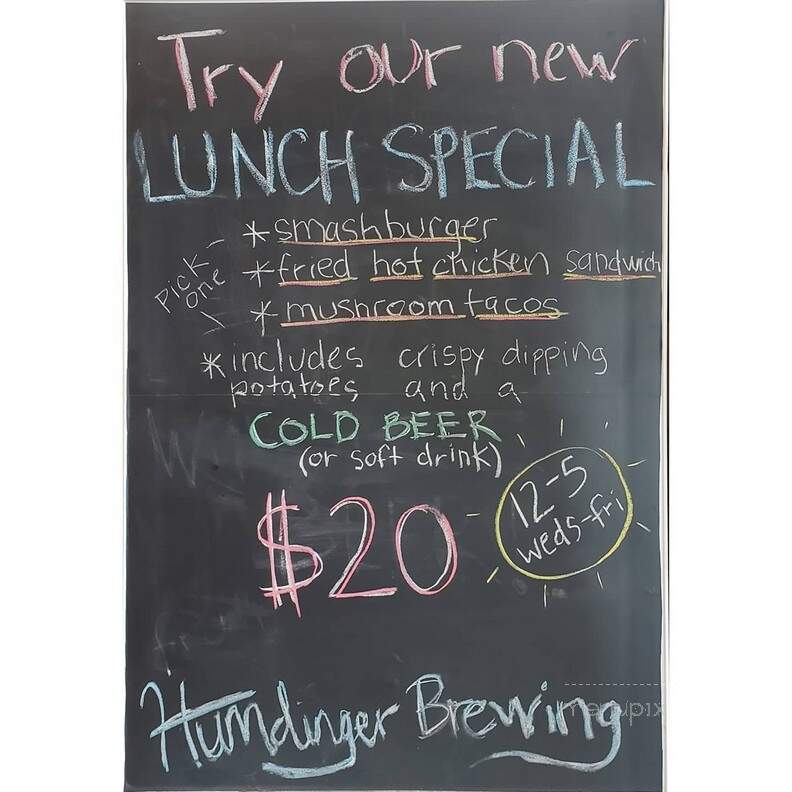 Try our new
LUNCH SPECIAL
Pick one
*smashburger
*fried hot chicken sandwich
*mushroom tacos
*includes crispy dipping
potatoes and a
COLD BEER
(or soft drink)
$20
12-5
weds-fri
Humdinger Brewing
menupix